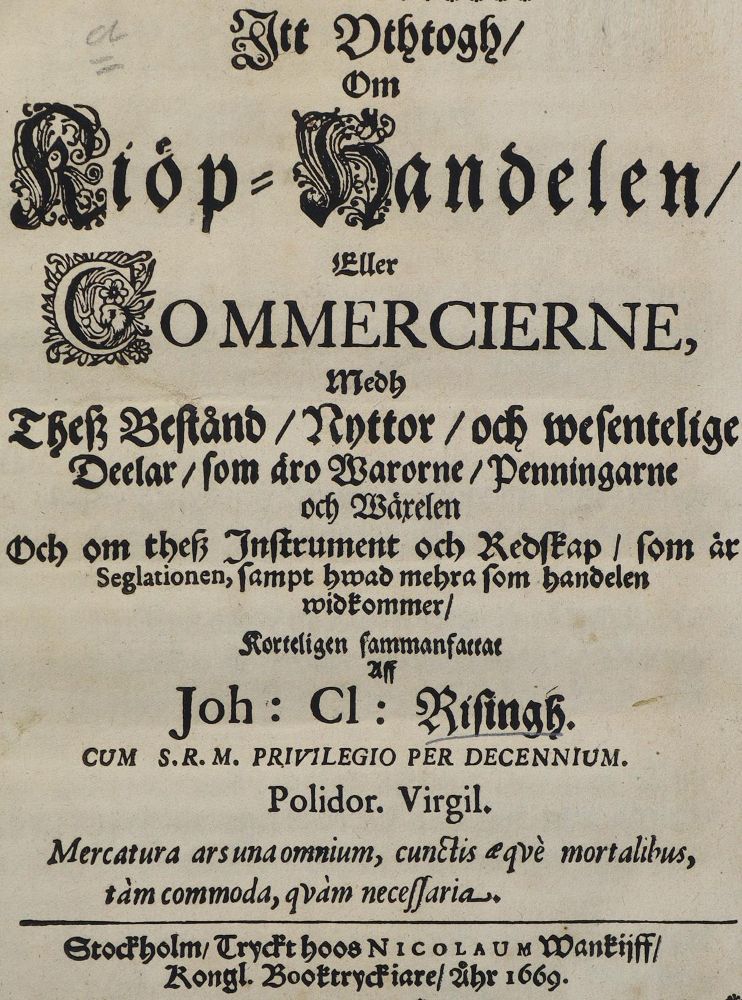 Itt Vthtogh/
Om
Kiöp-Handelen/
Eller
COMMERCIERNE,
Medh
Theß Bestånd/Nyttor/och wesentelige
Deelar/som äro Warorne/Penningarne
och Wäxelen
Och om theß Instrument och Redskap/som är
Seglationen, sampt hwad mehra som handelen
widkommer/
Korteligen sammanfattat
Aff
Joh: Cl: Risingh.
CUM S.R.M. PRIVILEGIO PER DECENNIUM.
Polidor. Virgil.
Mercatura ars una omnium, cunctis æqvè mortalibus,
tàm commoda, qvàm necessaria.
Stockholm/Tryckt hoos NICOLAUM Wankijff/
Kongl. Booktryckiare/Åhr 1669.